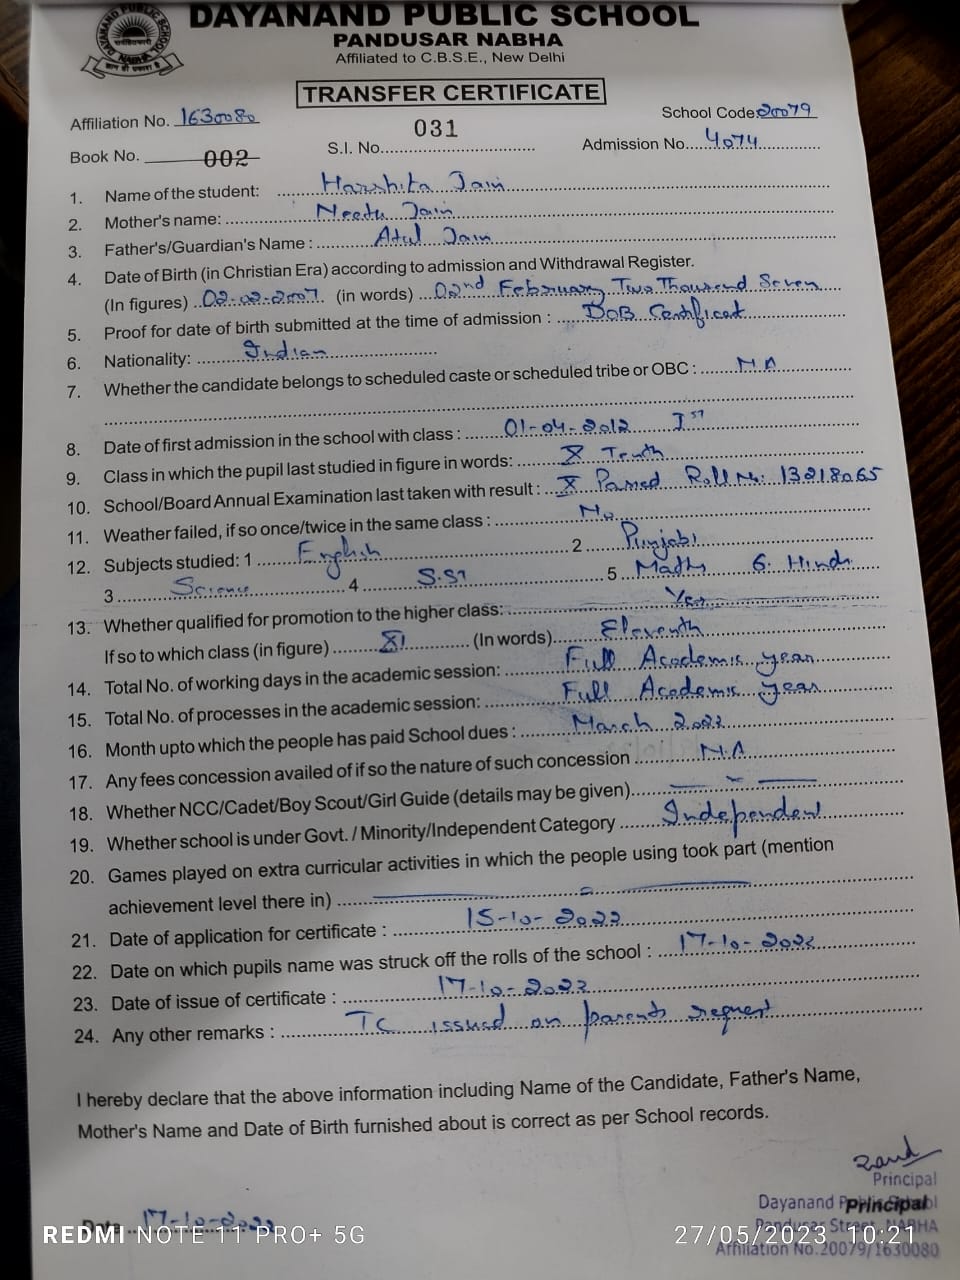 DAYANAND PUBLIC SCHOOL
PANDUSAR NABHA
Affiliated to C.B.S.E., New Delhi
TRANSFER CERTIFICATE
Affiliation No. 1630080 School Code 20079
Book No. 002 S.I. No. 031 Admission No. 4074
1. Name of the student: Harshita Jain
2. Mother's name: Neetu Jain
3. Father's/Guardian's Name : Atul Jain
4. Date of Birth (in Christian Era) according to admission and Withdrawal Register.
(In figures) 02-02-2007. (in words) 02nd February Two Thousand Seven
5. Proof for date of birth submitted at the time of admission : DOB Certificat
6. Nationality: Indian
7. Whether the candidate belongs to scheduled caste or scheduled tribe or OBC : NA
8. Date of first admission in the school with class : 01-04-2012 Ist
9. Class in which the pupil last studied in figure in words: X Tenth
10. School/Board Annual Examination last taken with result : X Passed Roll No: 13218065
11. Weather failed, if so once/twice in the same class : No
12. Subjects studied: 1 English 2 Punjabi
3 Science 4 S.St 5 Maths 6. Hindi
13. Whether qualified for promotion to the higher class: Yes
If so to which class (in figure) XI (In words) Eleventh
14. Total No. of working days in the academic session: Full Academic year
15. Total No. of processes in the academic session: Full Academic year
16. Month upto which the people has paid School dues : March 2022
17. Any fees concession availed of if so the nature of such concession N.A
18. Whether NCC/Cadet/Boy Scout/Girl Guide (details may be given)
19. Whether school is under Govt. / Minority/Independent Category Independent
20. Games played on extra curricular activities in which the people using took part (mention
achievement level there in)
21. Date of application for certificate : 15-10-2022
22. Date on which pupils name was struck off the rolls of the school : 17-10-2022
23. Date of issue of certificate : 17-10-2022
24. Any other remarks : TC issued on parents request
I hereby declare that the above information including Name of the Candidate, Father's Name,
Mother's Name and Date of Birth furnished about is correct as per School records.
Principal
Dayanand Public School Principal
Date 17-10-2022 Pandusar Street, NABHA
Affiliation No.20079/1630080
REDMI NOTE 11 PRO+ 5G 27/05/2023 10:21